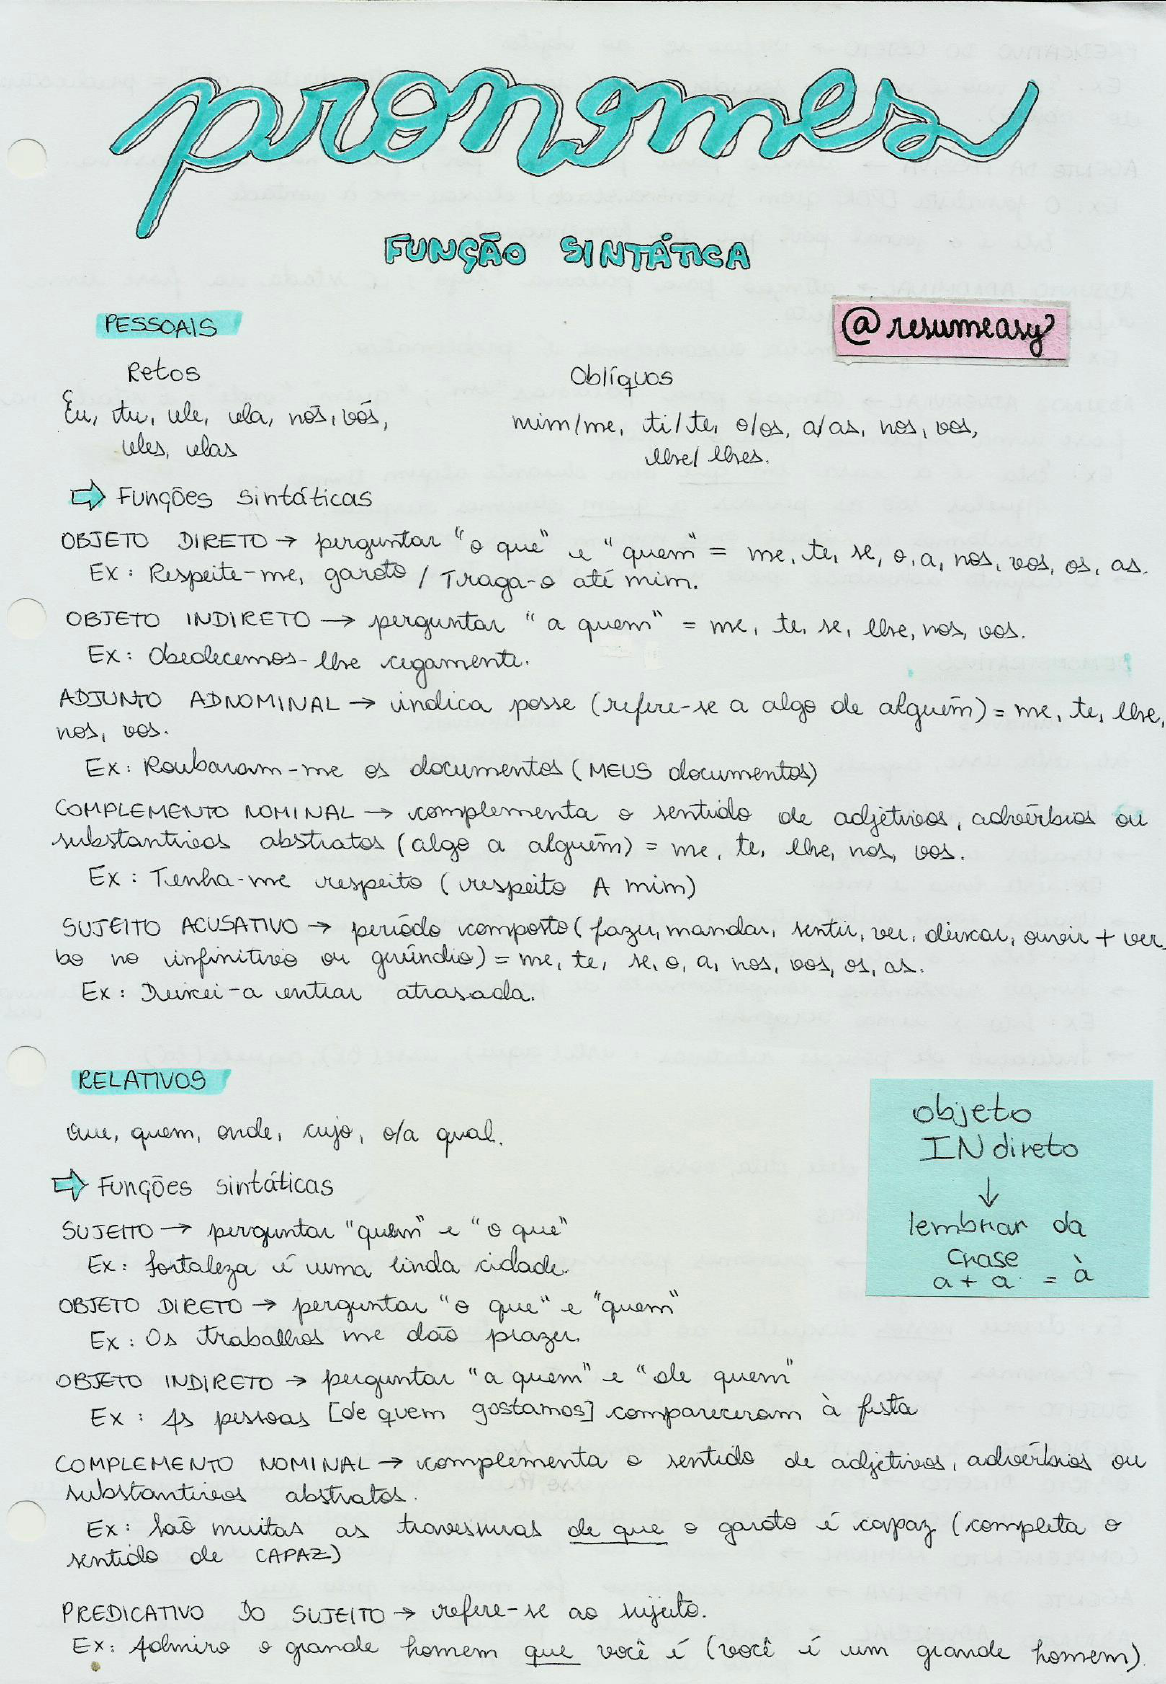 pronomes
FUNÇÃO SINTÁTICA
PESSOAIS
@resumeasy
Retos
Oblíquos
Eu, tu, ele, ela, nós, vós,
eles, elas
mim/me, ti/te, o/os, a/as, nos, vos,
lhe/lhes.
Funções sintáticas
OBJETO DIRETO → perguntar "o que" e "quem" = me, te, se, o, a, nos, vos, os, as.
Ex: Respeite-me, garoto / Traga-o até mim.
OBJETO INDIRETO → perguntar "a quem" = me, te, se, lhe, nos, vos.
Ex: Obedecemos-lhe cegamente.
ADJUNTO ADNOMINAL → indica posse (refere-se a algo de alguém) = me, te, lhe,
nos, vos.
Ex: Roubaram-me os documentos (MEUS documentos)
COMPLEMENTO NOMINAL → complementa o sentido de adjetivos, advérbios ou
substantivos abstratos (algo a alguém) = me, te, lhe, nos, vos.
Ex: Tenha-me respeito (respeito A mim)
SUJEITO ACUSATIVO → período composto (fazer, mandar, sentir, ver, deixar, ouvir + ver
bo no infinitivo ou gerúndio) = me, te, se, o, a, nos, vos, os, as.
Ex: Deixei-a entrar atrasada.
RELATIVOS
Que, quem, onde, cujo, o/a qual.
Funções sintáticas
SUJEITO → perguntar "quem" e "o que"
Ex: Fortaleza é uma linda cidade.
OBJETO DIRETO → perguntar "o que" e "quem"
Ex: Os trabalhos me dão prazer.
OBJETO INDIRETO → perguntar "a quem" e "de quem"
Ex: As pessoas [de quem gostamos] compareceram à festa
COMPLEMENTO NOMINAL → complementa o sentido de adjetivos, advérbios ou
substantivos abstratos.
Ex: São muitas as travessuras de que o garoto é capaz (completa o
sentido de CAPAZ)
PREDICATIVO DO SUJEITO → refere-se ao sujeito.
Ex: Admiro o grande homem que você é (você é um grande homem).
objeto
INdireto
↓
lembrar da
crase
a + a = à